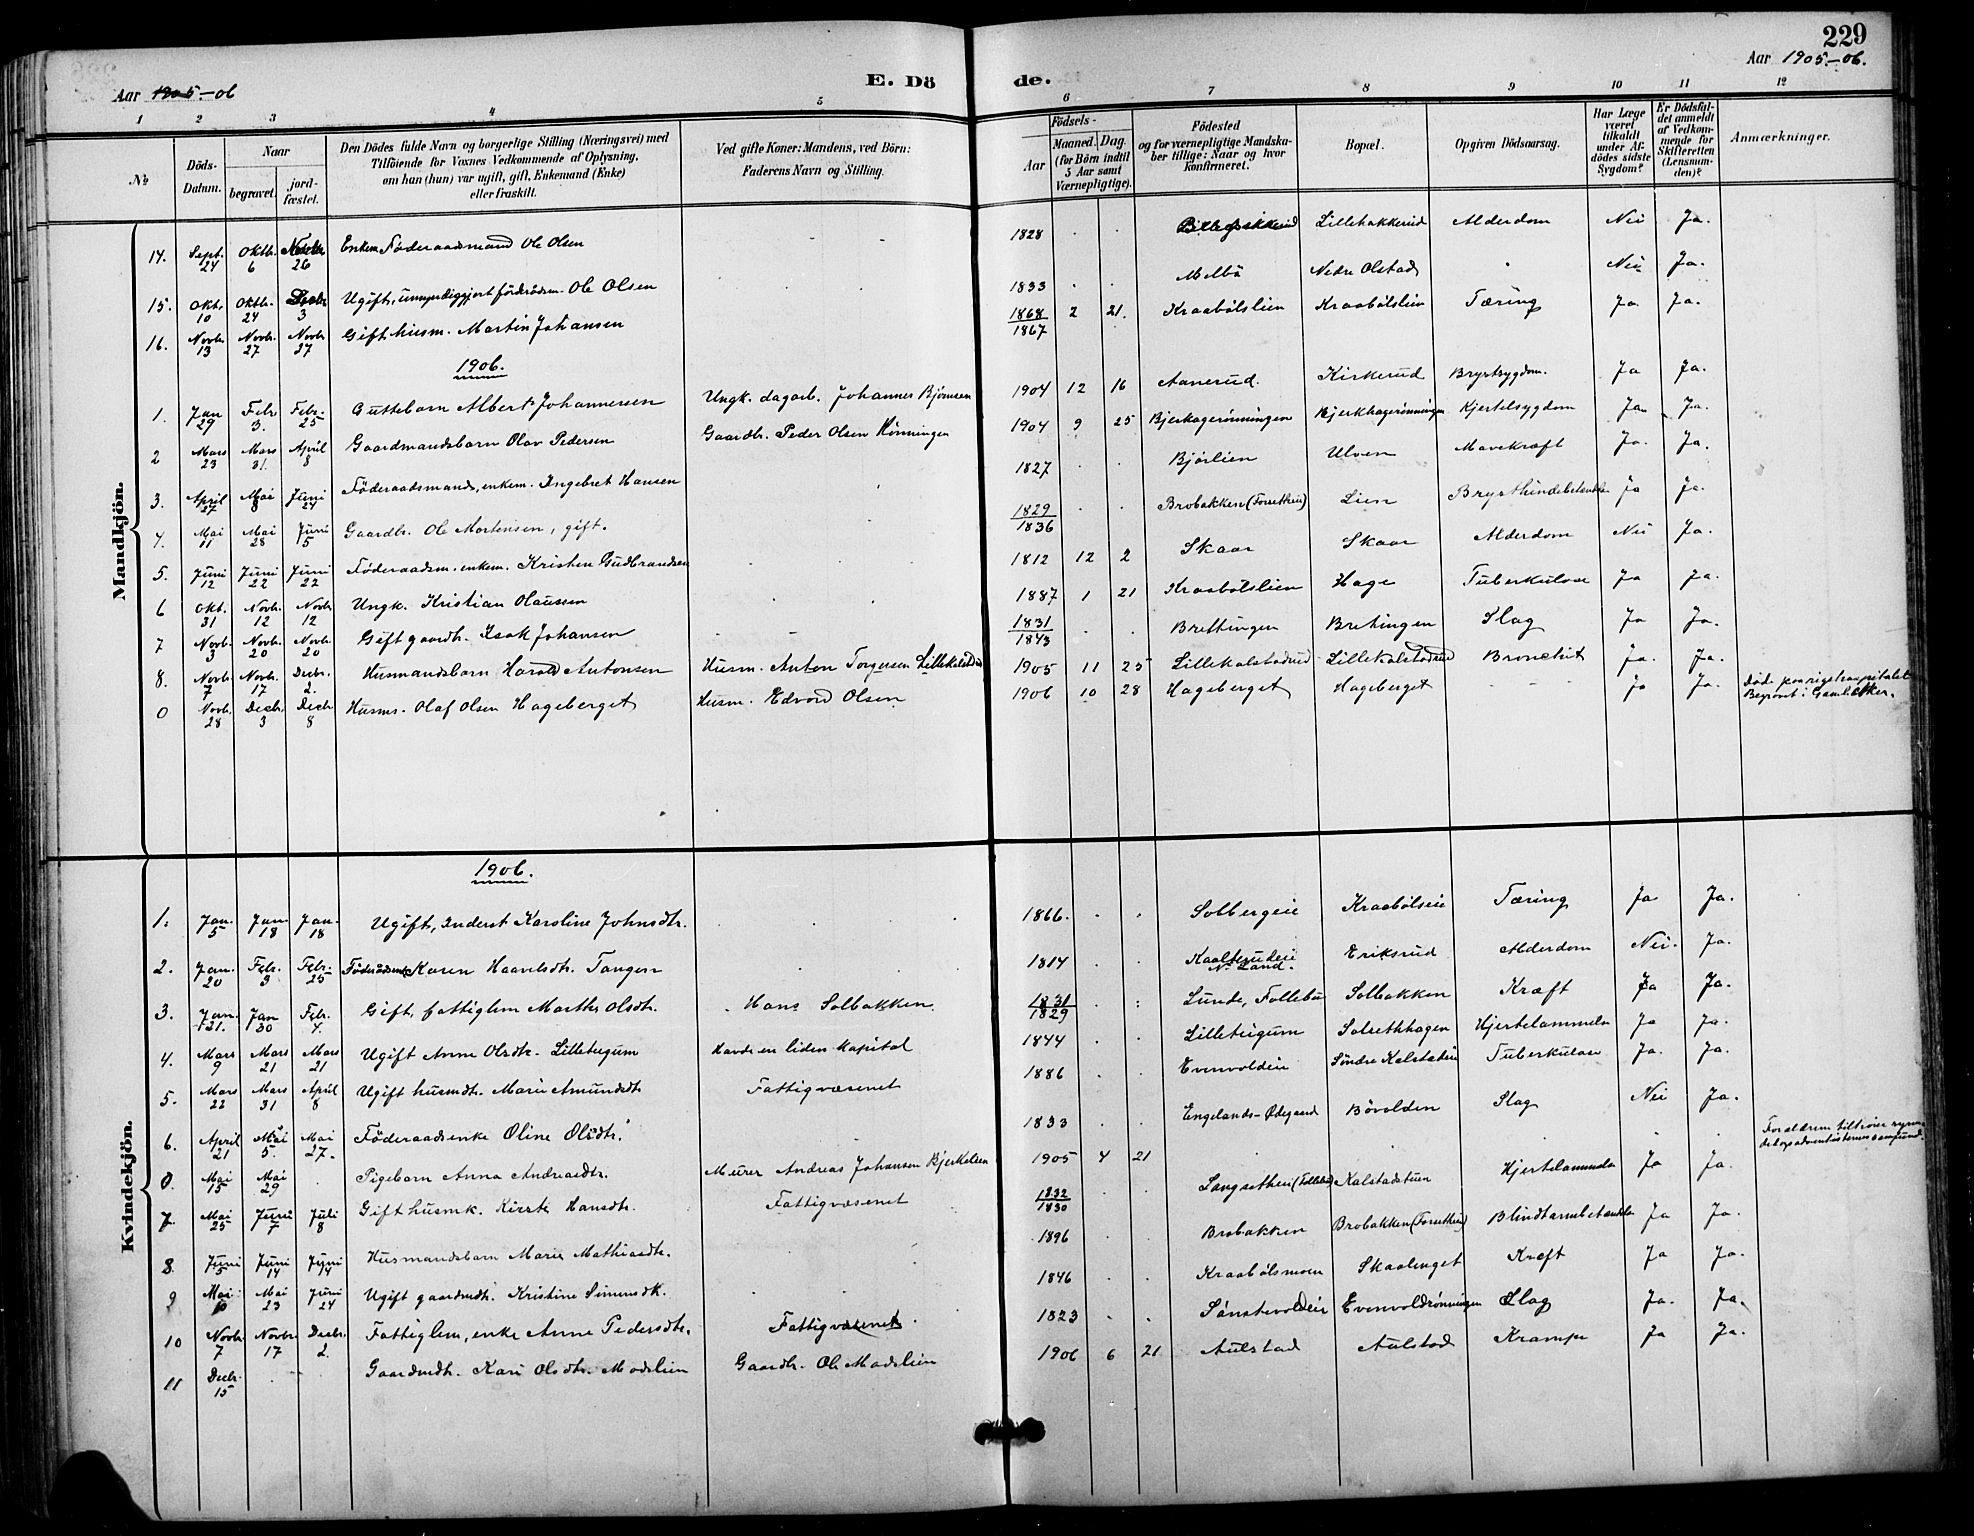 229
Aar 1905-06
E. Dö
de.
Aar 1905.-06.
1 2 3 4 5 6 7 8 9 10 11 12
No
Döds-Datum.
Naar
begravet.
jordfæstet.
Den Dödes fulde Navn og borgerlige Stilling (Næringsvei) med
Tilföiende for Voxnes Vedkommende af Oplysning,
om han (hun) var ugift, gift, Enkemand (Enke)
eller fraskilt.
Ved gifte Koner: Mandens, ved Börn:
Faderens Navn og Stilling.
Födsels-
Aar
Maaned. Dag.
(for Börn indtil
5 Aar samt
Værnepligtige).
Födested
og for værnepligtige Mandskaber tillige: Naar og hvor
Konfirmeret.
Bopæl.
Opgiven Dödsaarsag.
Har Læge
været
tilkaldt
under Afdödes sidste
Sygdom?
Er Dödsfaldet anmeldt
af Vedkommende for
Skifteretten
(Lensmanden)?
Anmærkninger.
Mandkjön.
14. Sept. 24 Oktb. 6 26 Enkem Föderaadsmand Ole Olsen 1828 Lillehakkerud Alderdom Nei Ja.
15. Okt. 10 Oktb. 24 3 Ugift, Ole Olsen 1833 Melbö Nedre Olstad Nei Ja.
16. Novb. 13 Novb. 27 Novb 27 Gift husm. Martin Johansen 1868 1867 2 21. Kraabölslien Kraabölslien Tæring Ja Ja.
1906.
1. Jan 29 Febr 3. Febr. 25 Guttebarn Albert Johannesen Ungk. dagarb. Johannes Björnsen 1904 12 16 Aanerud. Kirkerud Brystsygdom. Ja Ja.
2 Mars 23 Mars 31. April 8 Gaardmandsbarn Olav Pedersen Gaardbr. Peder Olsen Rönningen 1904 9 25 Bjerkagerönningen Bjerkhagerönningen Kjertelsygdom Ja Ja.
3. April 27 Mai 8 Juni 24 Föderaadsmand, enkem. Ingebret Hansen 1827 Björlien Ulven Mavekræft Ja. Ja.
4. Mai 11 Mai 28 Juni 5 Gaardbr. Ole Mortensen, gift. 1829 1836 Brobakken (Forsetheie) Lien Ja Ja.
5. Juni 12 Juni 22 Juni 22 Föderaadsm. enkem. Kristen Gudbrandsen 1812 12 2 Skaar Skaar Alderdom Nei Ja.
6 Okt. 31 Novb. 12 Novb 12 Ungk. Kristian Olaussen 1887 1 21 Kraabölslien Hage Tuberkulose Ja Ja.
7 Novb. 3 Novb. 20 Novb. 20 Gift gaardb. Isak Johansen 1831 1843 Brettingen Bretingen Slag Ja Ja.
8. Novb. 7 Novb. 17 Decbr. 2. Husmandsbarn Harald Antonsen Husm. Anton Torgersen Lillekalstad 1905 11 25 Lillekalstadrud Lillekalstadrud Bronchit Ja. Ja.
0 Novb. 28 Decb. 3 Decb 8 Husms. Olaf Olsen Hageberget Husm. Edvard Olsen 1906 10 28 Hageberget Hageberget Ja Ja. Död
Begravet i
Kvindekjön.
1906.
1. Jan. 5 Jan 18 Jan. 18 Ugift, Inderst Karoline Johnsdtr. 1866. Solbergeie Kraabölseie Tæring Ja Ja.
2. Jan. 20 Febr. 3 Febr. 25 Karen Haavelsdtr. Tangen 1814 N. Land. Eriksrud Alderdom Nei. Ja.
3. Jan. 21. Jan 30 Febr. 4. Gift, fattiglem Marthe Olsdtr. Hans Solbakken. 1831 1829 Lunde, Follebu Solbakken Kræft Ja Ja.
4. Mars 9 Mars 21 Mars 21 Ugift Anne Olsdtr. Lilletugum Havde en liden Kapital 1844 Lilletugum Solsethhagen Hjertelammelse Ja Ja.
5. Mars 22 Mars 31 April 8 Ugift husmdtr. Marie Amundsdtr Fattigvæsenet 1886 Evenvoldeie Söndre Kalstadeie Tuberkulose Ja. Ja.
6. April 21 Mai 5. Mai 27. Föderaadsenke Oline Olsdtr. 1833 Engelands-Ødegaard Bövolden Slag Nei Ja.
0. Mai 15 Mai 29 Pigebarn Anna Andreasdtr. Murer Andreas Johansen Bjerkelien 1905 4 21
7. Mai 25 Juni 7 Juli 8 Gift husmk. Kirsti Hansdtr. Fattigvæsenet 1832 1830 Kalstadstuen Hjertelammelse Ja Ja.
8. Juni 5 Juni 14 Juni Husmandsbarn Marie Mathiasdtr. 1896 Brobakken Brobakken (Forsetheie) Blindtarmbetændelse Ja Ja.
9 Mai 10 Mai 23 Juni 24 Ugift gaardmdtr. Kristine Simensdtr. 1846 Kraabölsmoen Skaalenget Kræft Ja Ja.
10 Novb. 7 Novbr. 17 Decbr. 2. Fattiglem, enke Anne Pedersdtr. Fattigvæsenet. 1823 Sönstevoldeie Evenvoldrönningen Slag Ja. Ja.
11 Decbr. 15 Gaardmdtr. Kari Olsdtr. Modslien Gaardbr. Ole Modslien 1906 6 21 Aulstad Aulstad Krampe Ja Ja.